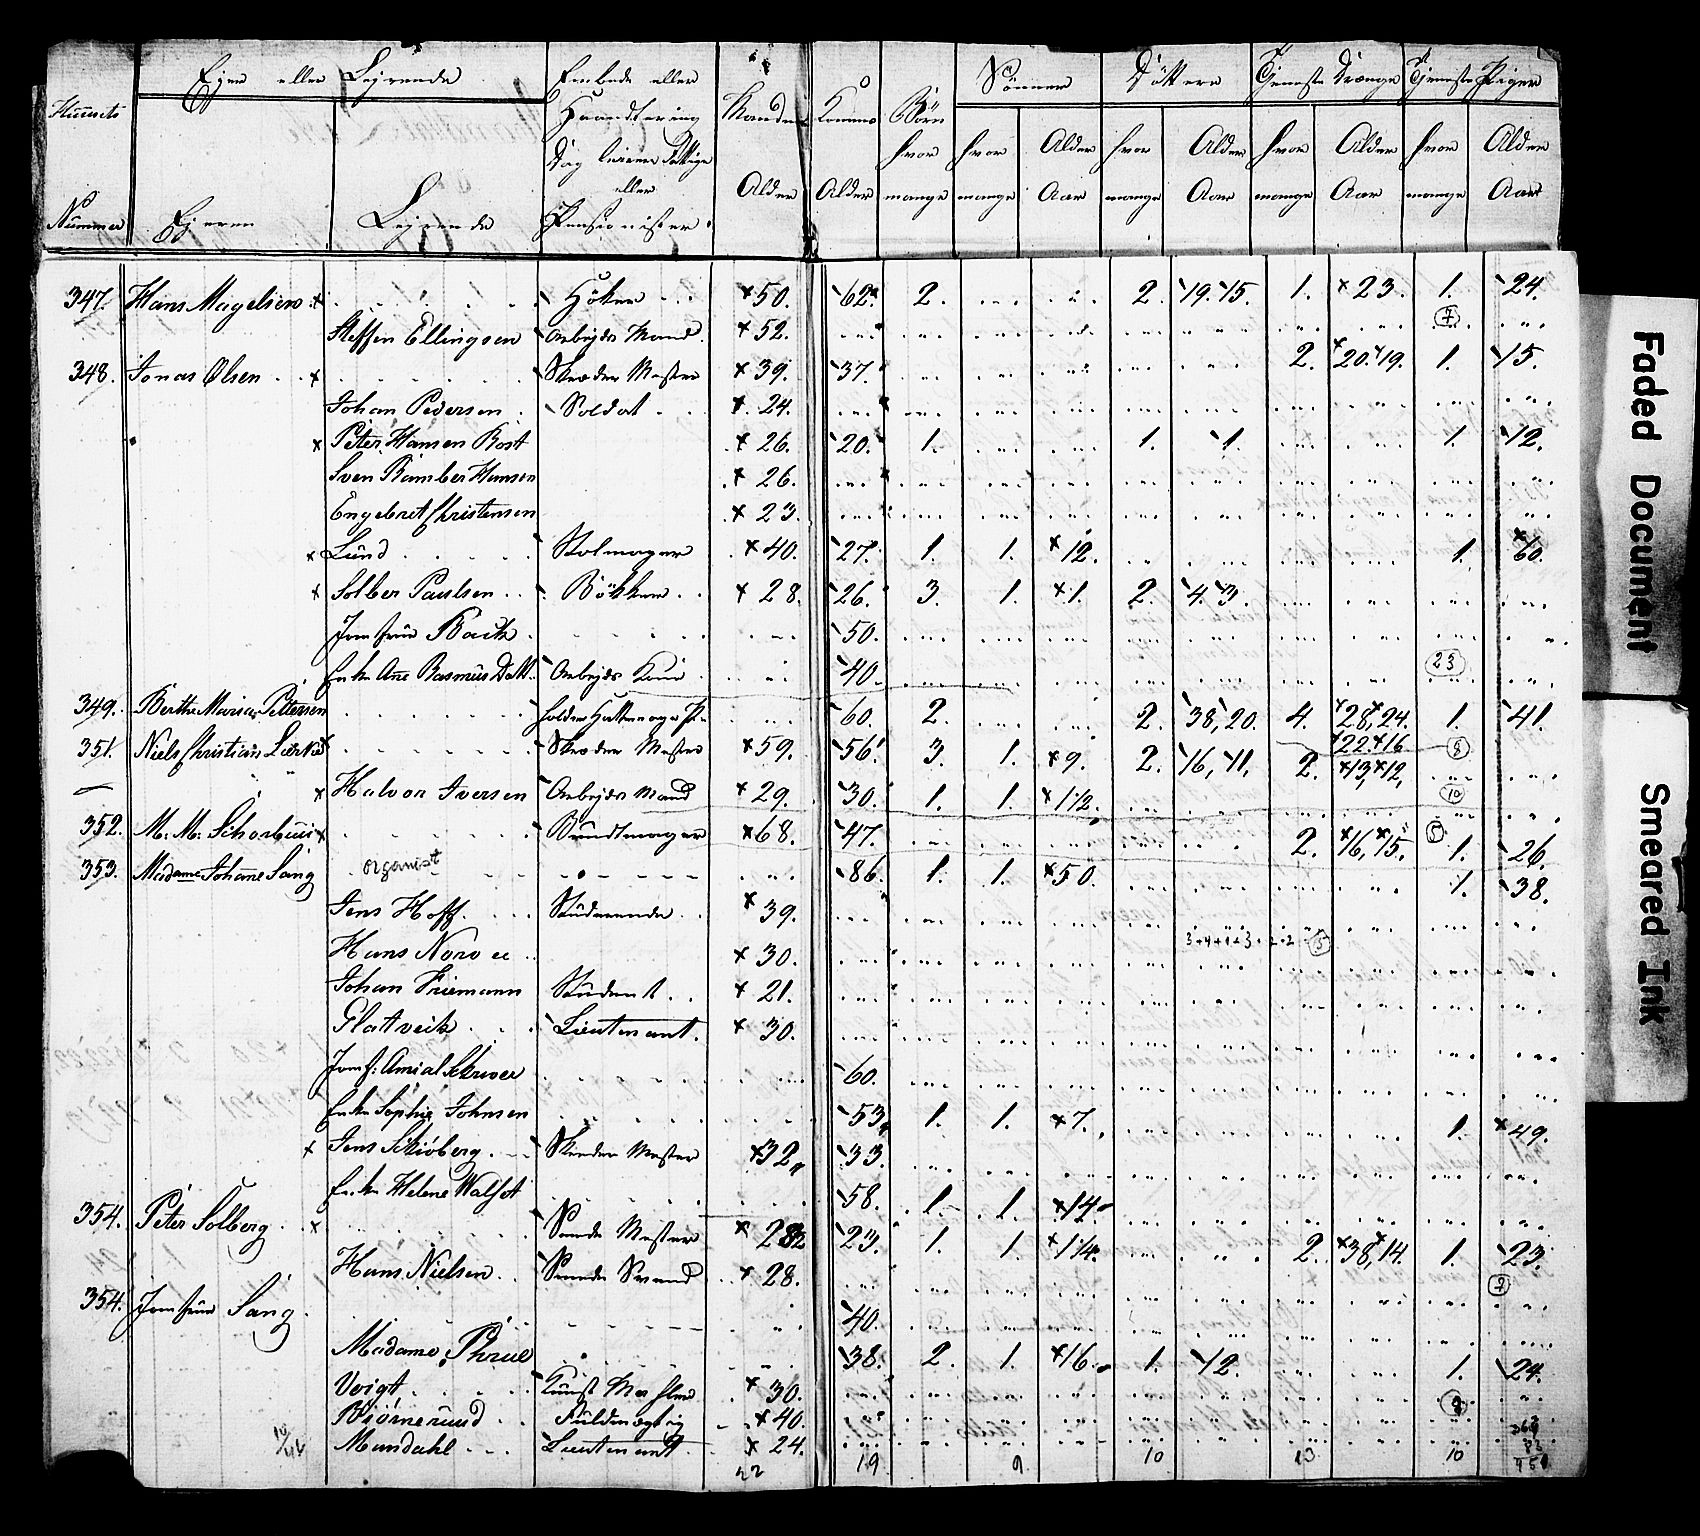 Eier eller Leyende
Embede eller
Sönner
Döttere
Tjeneste Drænge
Tjeneste Piger
Huusets
Haandtering
Mandens
Konens
Börn
hvor
hvor
Alder
hvor
Alder
hvor
Alder
hvor
Alder
eller
Alder
Alder
mange
mange
Aar
mange
Aar
mange
Aar
mange
Aar
Nummer
Eieren
Leyende
Pensionister
347. Hans Magelsen x Höker x 50. 62. 2. 2. 19. 15. 1. x 23. 1. 24.
7
Steffen Ellingsen Arbeyds Mand x 52.
348. Jonas Olsen x Skræder Mester x 39. 37. 2. x 20. x 19. 1. 15.
Johan Pedersen Soldat x 24.
x Peter Hansen Rost x 26. 20. 1. 1. 1. 1. 12.
Sven Hansen x 26.
Engebret Christensen x 23.
x Lund Stolmager x 40. 27. 1. 1. x 12. 1. x 60
x Solber Paulsen Bökker x 28. 26. 3. 1. x 1. 2. 4. 3.
Jomfrue Back 50.
23
Enke Ane Rasmus Datt. Arbeyds Kone 40.
349. Berthe Maria Pettersen 60. 2. 2. 38, 20. 4. x 28, x 24. 1. 41.
x 22. x 16
351. Niels Christian x Skræder Mester x 59. 56. 3. 1. x 9. 2. 16, 11. 2. x 13, x 12,
8
x Halvor Iversen Arbeyds Mand x 29. 30. 1. 1. x 1/2.
10
352. M. M. x Bundtmager x 68. 47. 2. x 16, x 15. 1. 26.
5
353. Madame Johanne Sang organist 86. 1. 1. x 50. 1. 38.
Jens Hoff. Studerende x 39.
3+4+1+3+2+2 15
Hans x 30.
Johan Friemann Student x 21.
Platveik Lieutenant. x 30.
Jomf: 60.
Enke Sophie Johnsen 53. 1. 1. x 7. 1. x 49.
x Jens Schiöberg Mester x 32. 33.
Enke Helene 58. 1. 1. x 14.
354. Peter Solberg x Smede Mester x 28 23. 1. 1. x 1/4. 2. x 38, x 14. 1. 23.
Hans Nielsen Smede Svend x 28.
9
354. Jomfrue Sang. 40.
Madame 38. 2. 1. x 16. 1. 12. 1. 24.
Voigt Kunst Mahler x 30.
8
Biörnerund Fuldmægtig x 40.
Mandahl Lieutenant x 24.
22 19 9 10 13 10
Faded Document
Smeared Ink